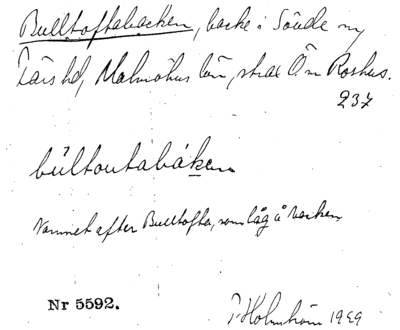 Bulltoftabacken, backe i Sövde sn
Färs hd, Malmöhus län, strax Ö om Roshus.
237
bùltoutabáken
Namnet efter Bulltofta, som låg å backen
Nr 5592.
Holmström 1929